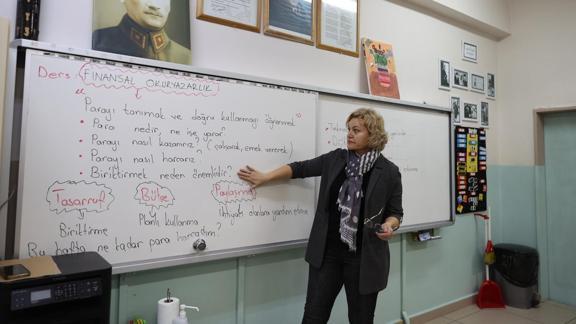 Ders: FİNANSAL OKURYAZARLIK
" Parayı tanımak ve doğru kullanmayı öğrenmek "
• Para nedir, ne işe yarar?
• Parayı nasıl kazanırız? (çalışarak, emek vererek)
• Parayı nasıl harcarız?
• Biriktirmek neden önemlidir?
Tasarruf Bütçe Paylaşma
Biriktirme Planlı kullanma ihtiyacı olanlara yardım etme
Bu hafta ne kadar para harcadım?